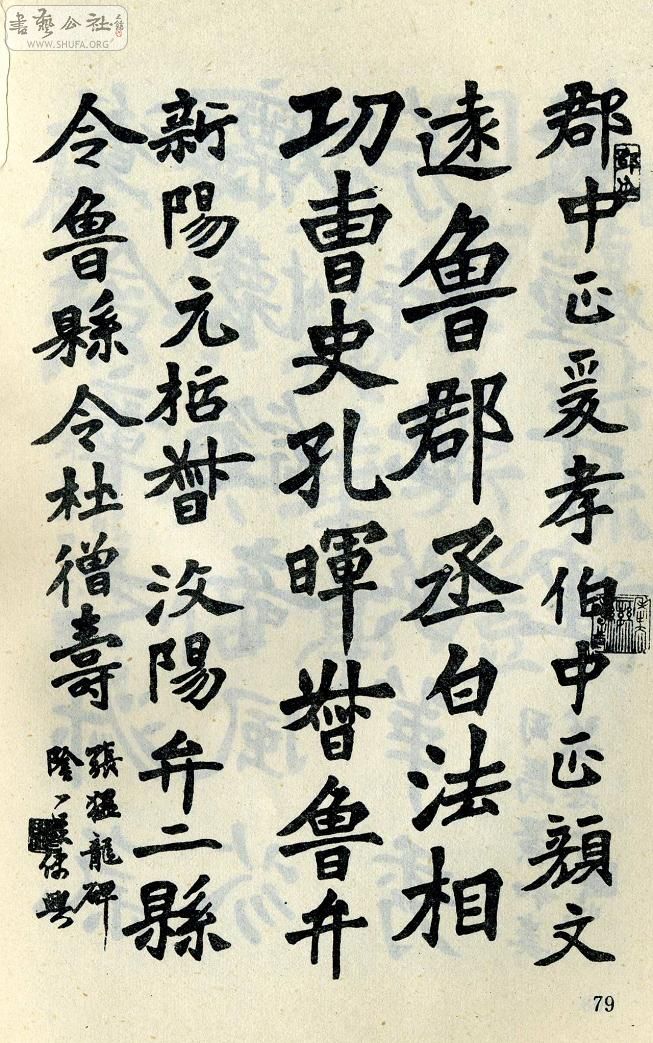 書藝公社
WWW.SHUFA.ORG
郡中正爰孝伯中正顔文
遠魯郡丞白法相
功曹史孔暉督魯弁
新陽元括督汶陽弁二縣
令魯縣令杜僧壽
張猛龍碑
陰
79